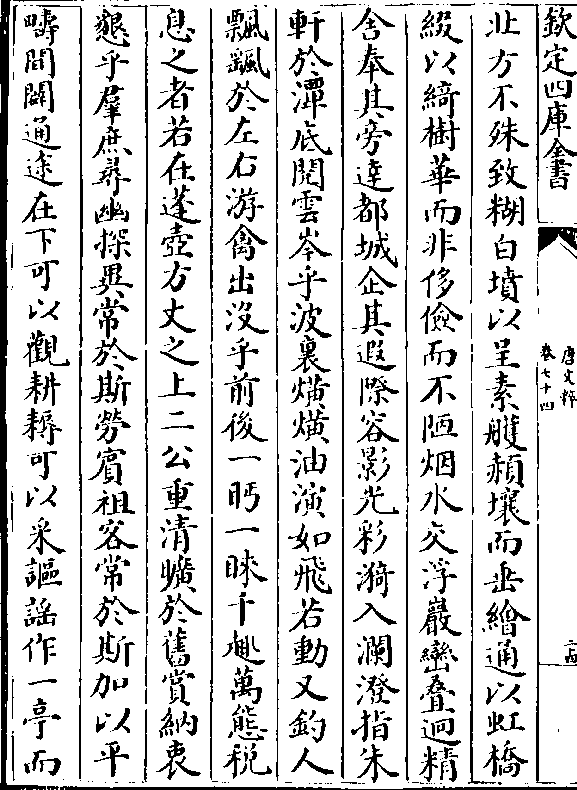 欽定四庫全書
唐文粹
卷七十四
北方不殊致糊白墳以呈素雘赬壤而垂繪通以虹橋
綴以綺樹華而非侈儉而不陋烟水交浮巖巒疊迥精
舍奉其旁達都城企其遐際容影光彩漪入瀾澄指朱
軒於潭底閱雲岑乎波裏熿熿油演如飛若動又釣人
飄飄於左右游禽出沒乎前後一眄一睞千趣萬態税
息之者若在蓬壺方丈之上二公重清曠於舊賞納衷
懇乎羣庶尋幽探異常於斯勞賓祖客常於斯加以平
疇間闢通途在下可以觀耕耨可以采謳謡作一亭而